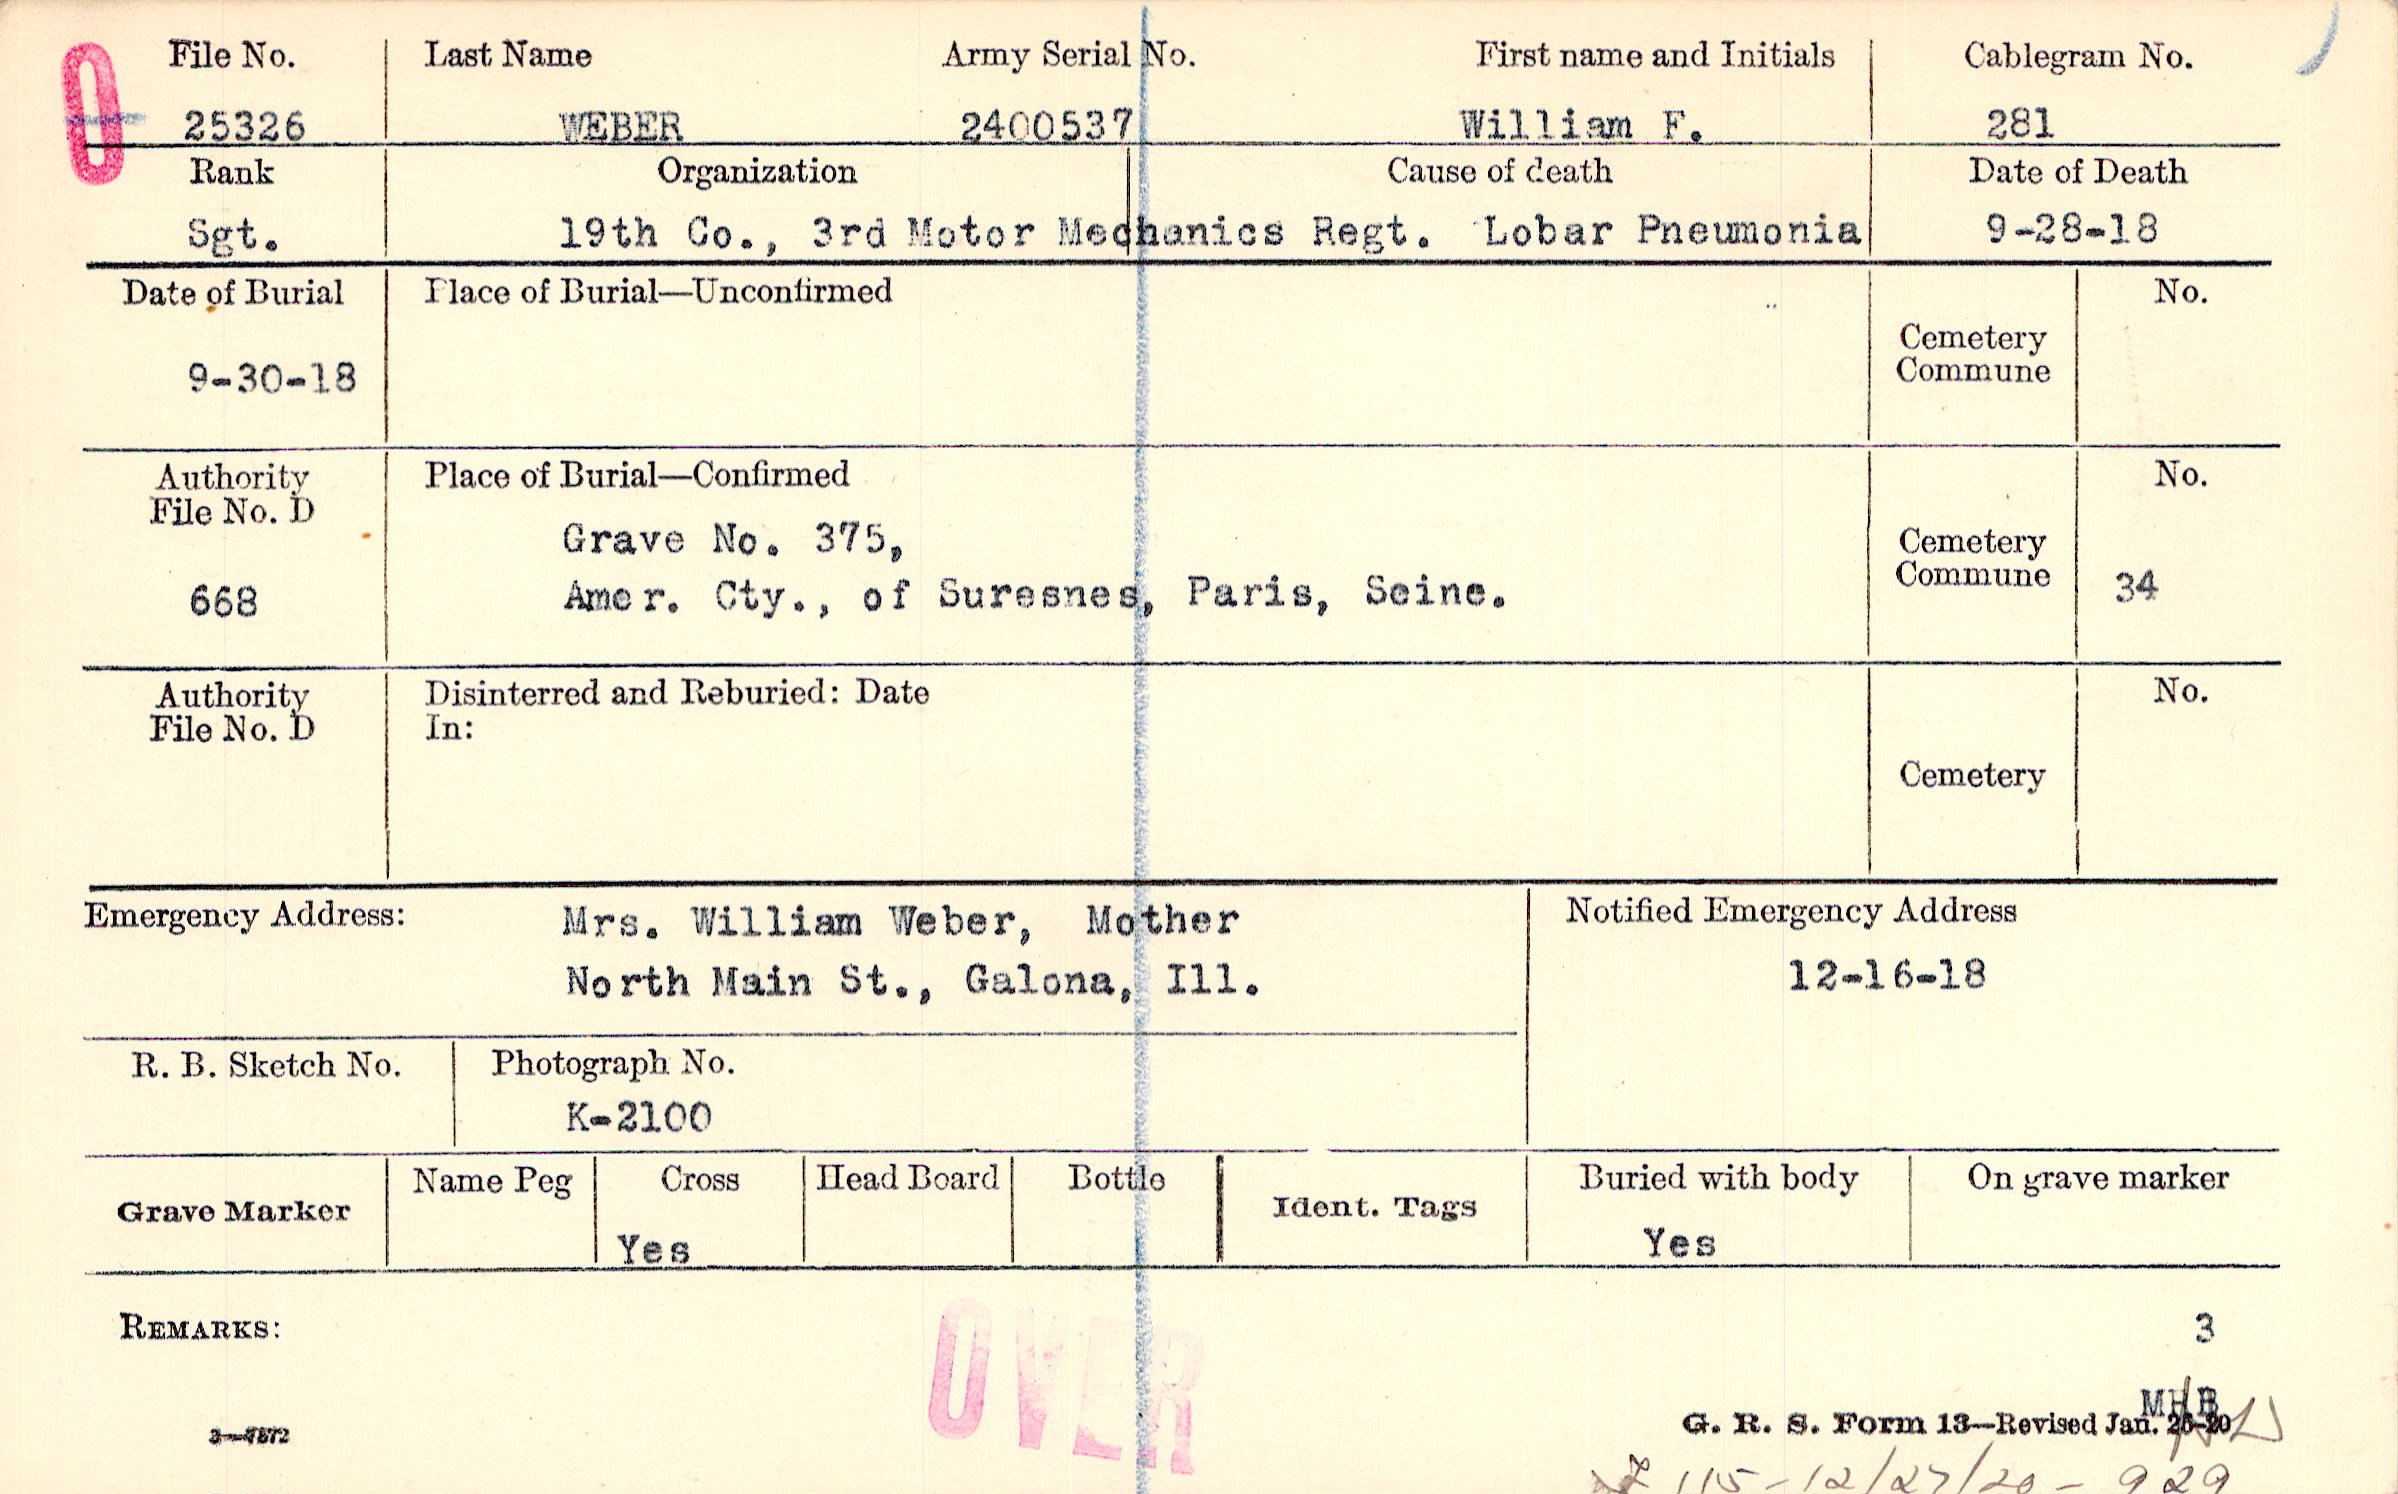 O
File No. Last Name Army Serial No. First name and Initials Cablegram No.
25326 WEBER 2400537 William F. 281
Rank Organization Cause of death Date of Death
Sgt. 19th Co., 3rd Motor Mechanics Regt. Lobar Pneumonia 9-28-18
Date of Burial Place of Burial—Unconfirmed No.
Cemetery
Commune
9-30-18
Authority Place of Burial—Confirmed No.
File No. D
Grave No. 375, Cemetery
Commune 34
668 Amer. Cty., of Suresnes, Paris, Seine.
Authority Disinterred and Reburied: Date No.
File No. D In:
Cemetery
Emergency Address: Mrs. William Weber, Mother Notified Emergency Address
North Main St., Galona, Ill. 12-16-18
R. B. Sketch No. Photograph No.
K-2100
Grave Marker Name Peg Cross Head Board Bottle Ident. Tags Buried with body On grave marker
Yes Yes
REMARKS: 3
OVER
MHB
3—7572 G. R. S. Form 13—Revised Jan. 26-20
115-12/27/20-929